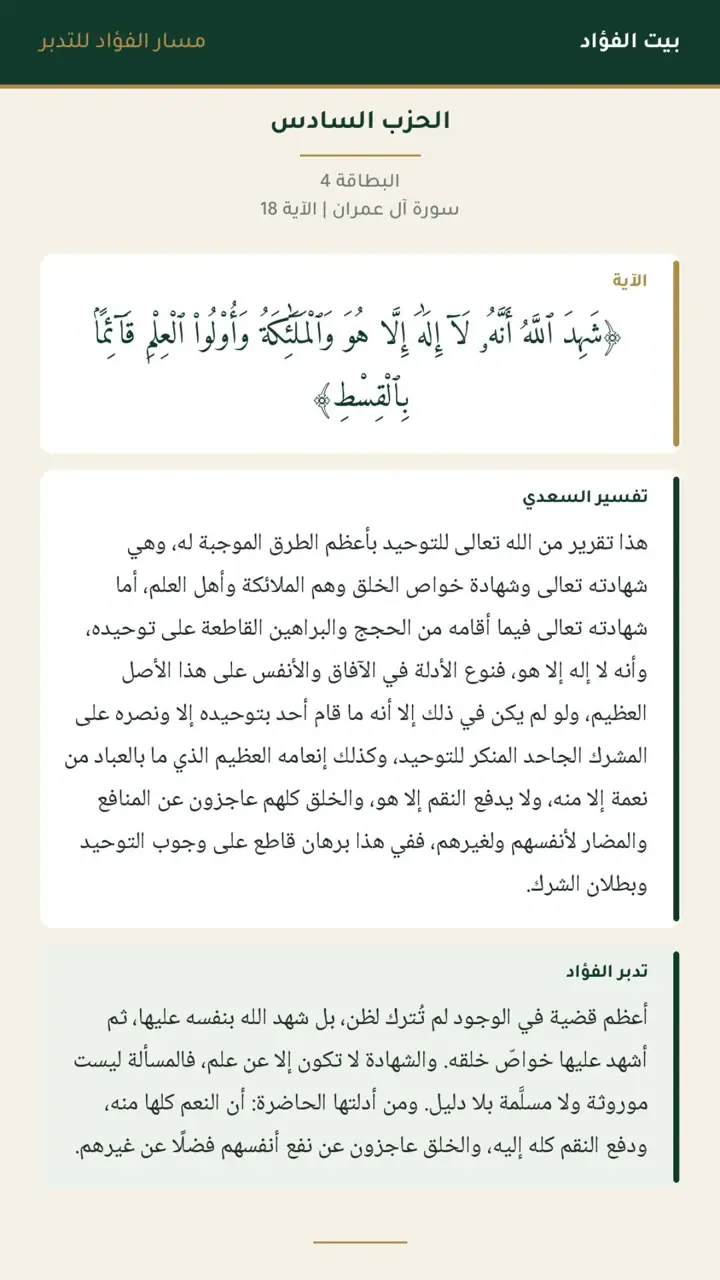 بيت الفؤاد
مسار الفؤاد للتدبر
الحزب السادس
البطاقة 4
سورة آل عمران | الآية 18
الآية
﴿شَهِدَ ٱللَّهُ أَنَّهُۥ لَآ إِلَٰهَ إِلَّا هُوَ وَٱلْمَلَٰٓئِكَةُ وَأُوْلُواْ ٱلْعِلْمِ قَآئِمًۢا
بِٱلْقِسْطِ﴾
تفسير السعدي
هذا تقرير من الله تعالى للتوحيد بأعظم الطرق الموجبة له، وهي
شهادته تعالى وشهادة خواص الخلق وهم الملائكة وأهل العلم، أما
شهادته تعالى فيما أقامه من الحجج والبراهين القاطعة على توحيده،
وأنه لا إله إلا هو، فنوع الأدلة في الآفاق والأنفس على هذا الأصل
العظيم، ولو لم يكن في ذلك إلا أنه ما قام أحد بتوحيده إلا ونصره على
المشرك الجاحد المنكر للتوحيد، وكذلك إنعامه العظيم الذي ما بالعباد من
نعمة إلا منه، ولا يدفع النقم إلا هو، والخلق كلهم عاجزون عن المنافع
والمضار لأنفسهم ولغيرهم، ففي هذا برهان قاطع على وجوب التوحيد
وبطلان الشرك.
تدبر الفؤاد
أعظم قضية في الوجود لم تُترك لظن، بل شهد الله بنفسه عليها، ثم
أشهد عليها خواصّ خلقه. والشهادة لا تكون إلا عن علم، فالمسألة ليست
موروثة ولا مسلَّمة بلا دليل. ومن أدلتها الحاضرة: أن النعم كلها منه،
ودفع النقم كله إليه، والخلق عاجزون عن نفع أنفسهم فضلًا عن غيرهم.